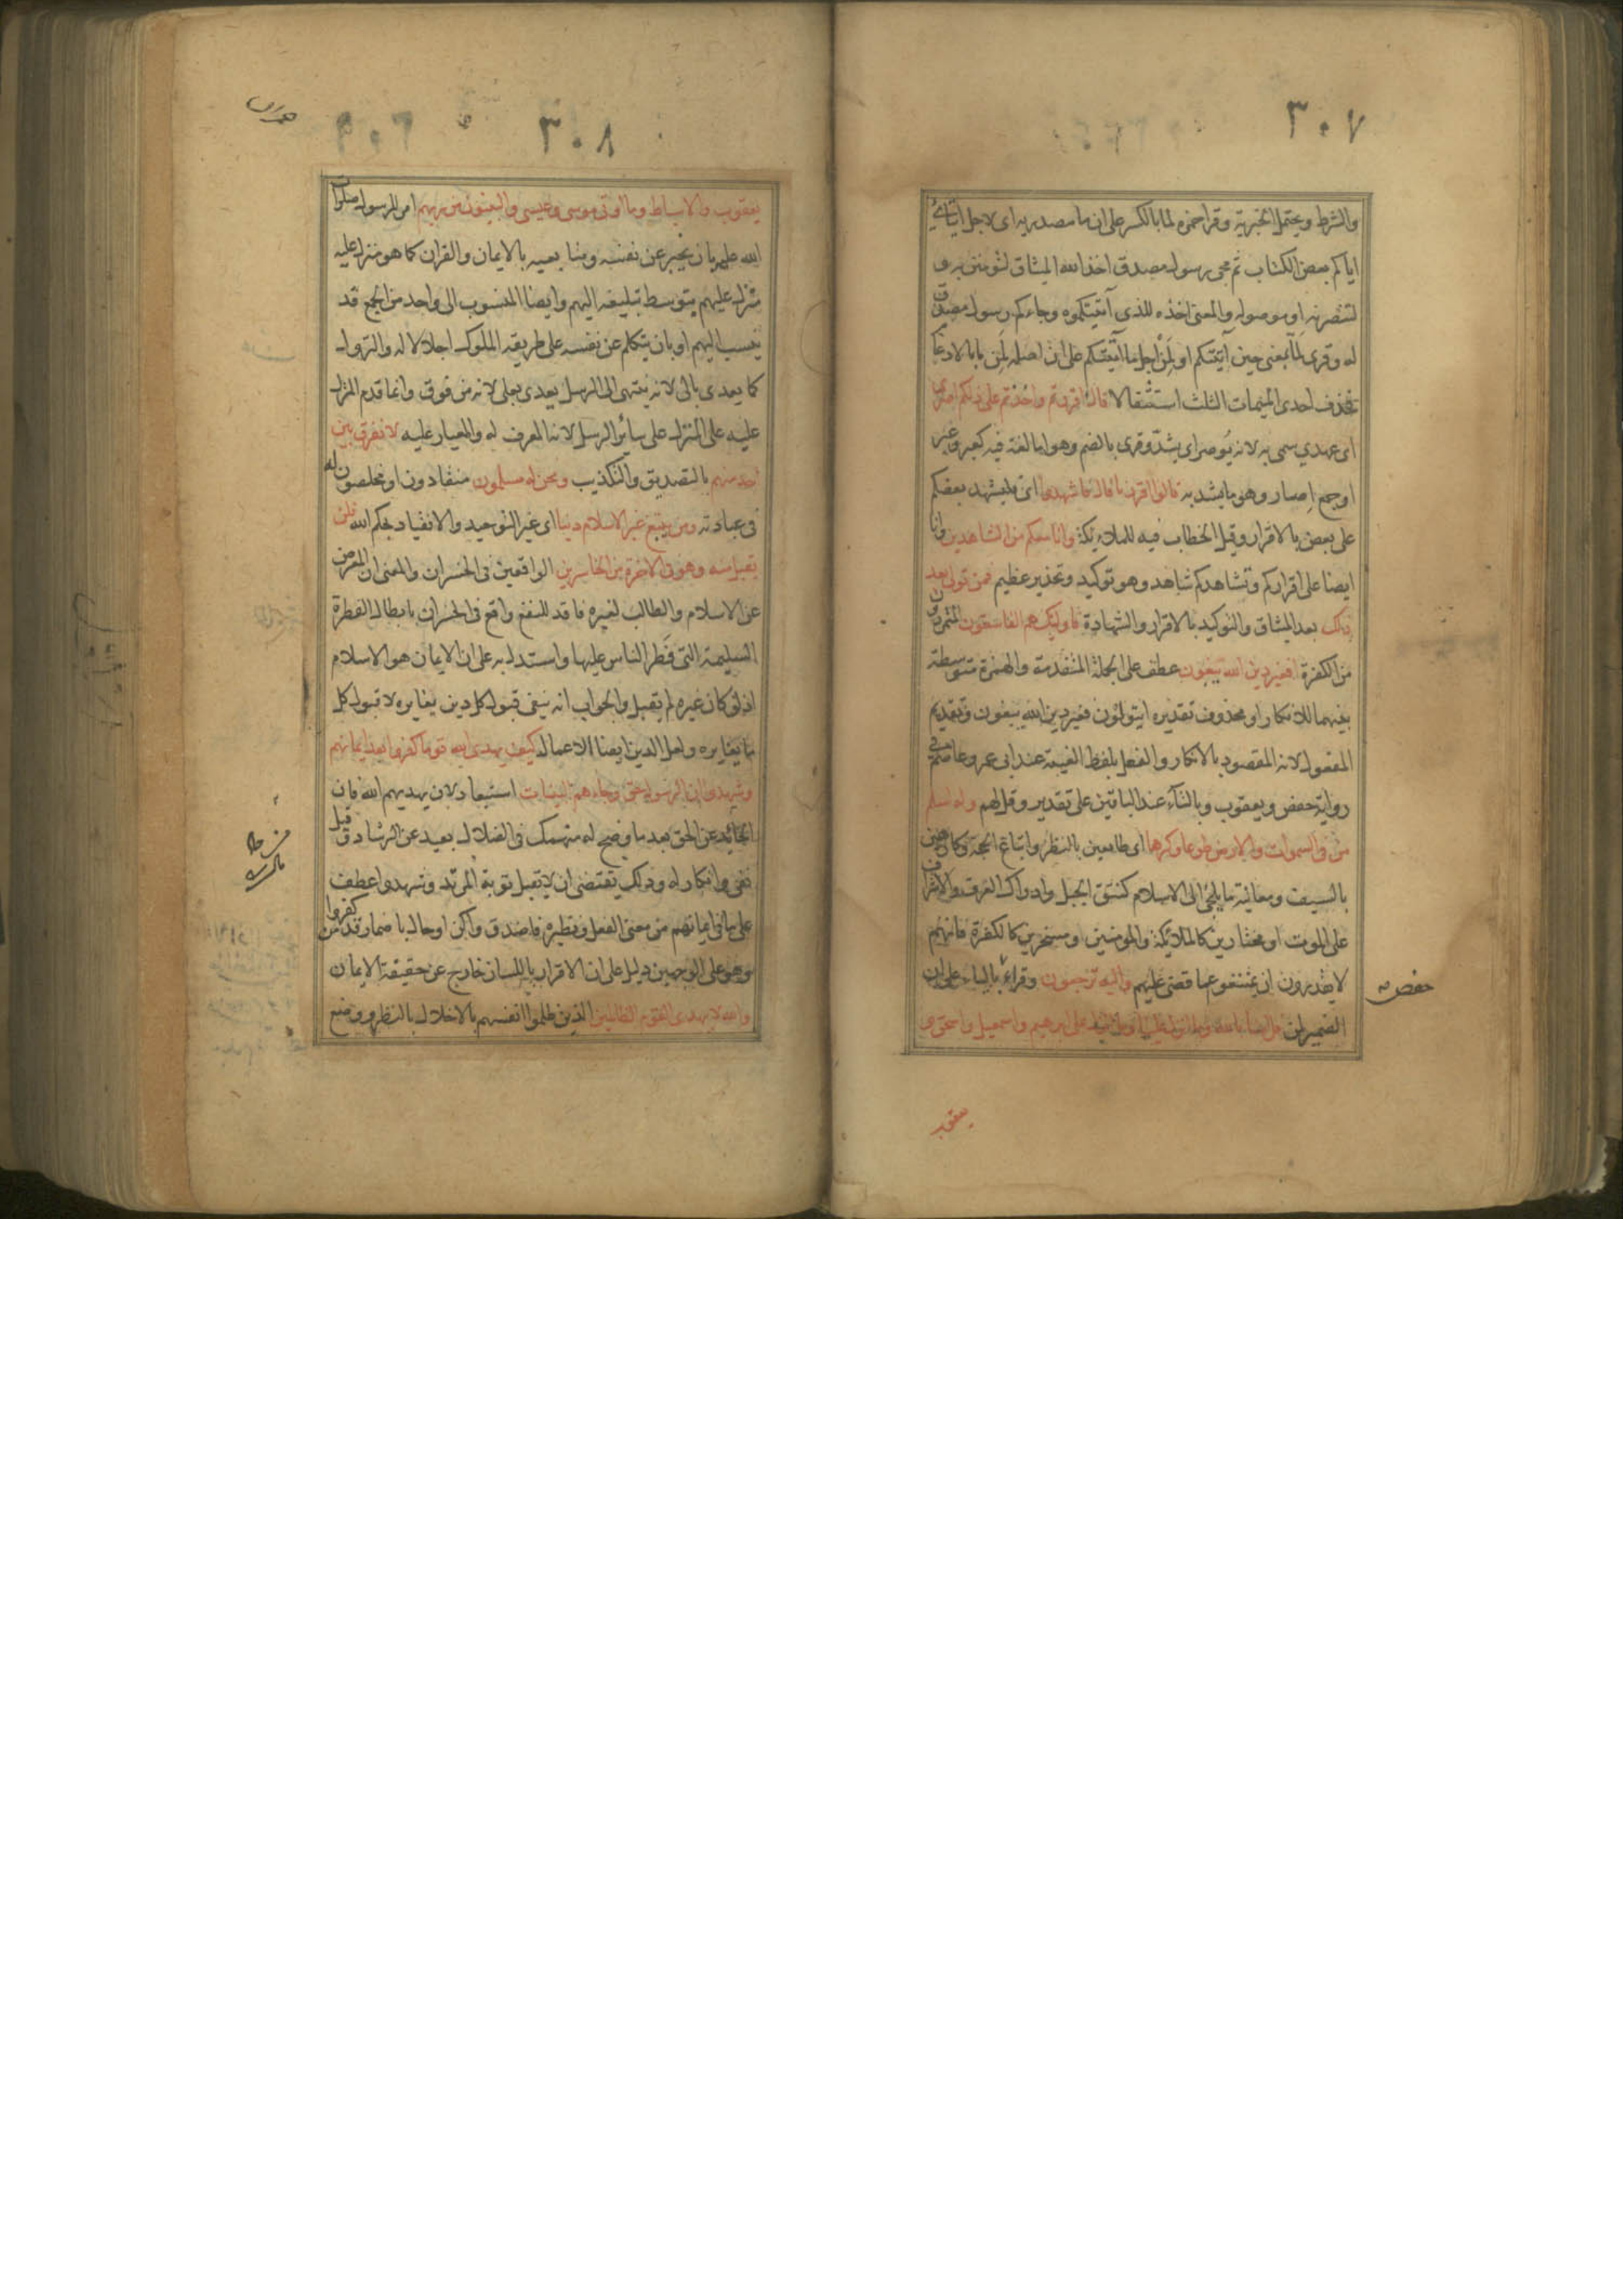 ٣٠٧
والشرط ويحتمل الخبرية وقرا حمزه لما بالكسر على ان ما مصدريه اى لاجل ايتائي
اياكم بعض الكتاب ثم مجئ رسول مصدق اخذ الله الميثاق لتومنن به و
لتنصرنه او موصوله والمعنى اخذه للذى آتيتكموه وجاءكم رسول مصدق
له وقرى لمّا بمعنى حين آتيتكم او لمن اجل ما آتيتكم على ان اصله لمن ما بالادغام
فحذف احدى الميمات الثلث استثقالا قال ءاقررتم واخذتم على ذلكم اصرى
اى عهدي سمى به لانه يُوصر اى يشدّ وقرى بالضم وهو اما لغة فيه كعبر وعبر
او جمع اِصار وهو ما يشد به قالوا اقررنا قال فاشهدوا اى فليشهد بعضكم
على بعض بالاقرار وقيل الخطاب فيه للملائكة وانا معكم من الشاهدين وانا
ايضا على اقراركم وتشاهدكم شاهد وهو توكيد وتحذير عظيم فمن تولى بعد
ذلك بعد الميثاق والتوكيد بالاقرار والشهادة فاولئك هم الفاسقون المتمردون
من الكفرة افغير دين الله يبغون عطف على الجملة المتقدمة والهمزة متوسطة
بينهما للانكار او محذوف تقديره ايتولون فغير دين الله يبغون وتقديم
المفعول لانه المقصود بالانكار والفعل بلفظ الغيبة عند ابى عمرو وعاصم في
رواية حفص ويعقوب وبالتاء عند الباقين على تقدير وقل لهم وله اسلم
من فى السموات والارض طوعا وكرها اى طايعين بالنظر واتباع الحجة وكارهين
بالسيف ومعاينة ما يلجئ الى الاسلام كنتق الجبل وادراك الغرق والاشراف
على الموت او مختارين كالملائكة والمومنين ومسخرين كالكفرة فانهم
لا يقدرون ان يمتنعوا عما قضى عليهم واليه ترجعون وقراء بالياء على ان
حفص
الضمير لمن قل امنا بالله وما انزل علينا وما انزل على ابرهيم واسمعيل واسحق و
يعقوب
٣٠٨
يعقوب والاسباط وما اوتى موسى وعيسى والنبيون من ربهم امر للرسول صلوات
الله عليه بان يخبر عن نفسه ومتابعيه بالايمان والقران كما هو منزل عليه
منزل عليهم بتوسط تبليغه اليهم وايضا المنسوب الى واحد من الجمع قد
ينسب اليهم او بان يتكلم عن نفسه على طريقه الملوك اجلالا له والنزول
كما يعدى بالى لانه ينتهى الى الرسل يعدى بعلى لانه من فوق وانما قدم المنزل
عليه على المنزل على سائر الرسل لانه المعرف له والمعيار عليه لا نفرق بين
احد منهم بالتصديق والتكذيب ونحن له مسلمون منقادون او مخلصون له
فى عبادته ومن يبتغ غير الاسلام دينا اى غير التوحيد والانقياد لحكم الله فلن
يقبل منه وهو فى الاخرة من الخاسرين الواقعين فى الخسران والمعنى ان المعرض
عن الاسلام والطالب لغيره فاقد للنفع واقع فى الخسران بابطال الفطرة
السليمة التى فَطر الناس عليها واستدل به على ان الايمان هو الاسلام
اذ لو كان غيره لم تقبل والجواب انه ينفى قبول كل دين يغايره لا قبول كل
ما يغايره ولعل الدين ايضا الاعمال كيف يهدى الله قوما كفروا بعد ايمانهم
وشهدوا ان الرسول حق وجاءهم البينات استبعاد لان يهديهم الله فان
الحائد عن الحق بعد ما وضح له منهمك فى الضلال بعيد عن الرشاد وقيل
نفى وانكار له وذلك يقتضى ان لا تقبل توبة المرتد وشهدوا عطف
على ما فى ايمانهم من معنى الفعل ونظيره فاصدق واكن او حال باضمار قد من كفروا
وهو على الوجهين دليل على ان الاقرار باللسان خارج عن حقيقة الايمان
والله لا يهدى القوم الظالمين الذين ظلموا انفسهم بالاخلال بالنظر ووضع